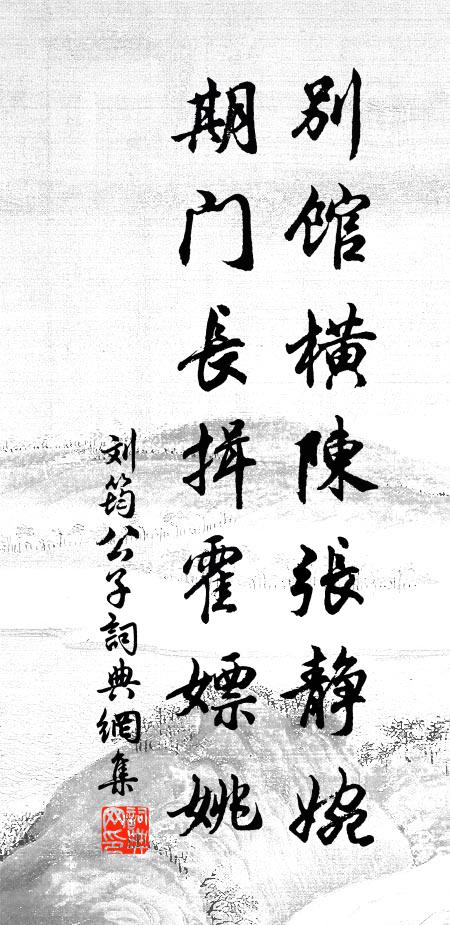 别馆橫陳張静婉
期门長揖霍嫖姚
刘筠公子詞典網集